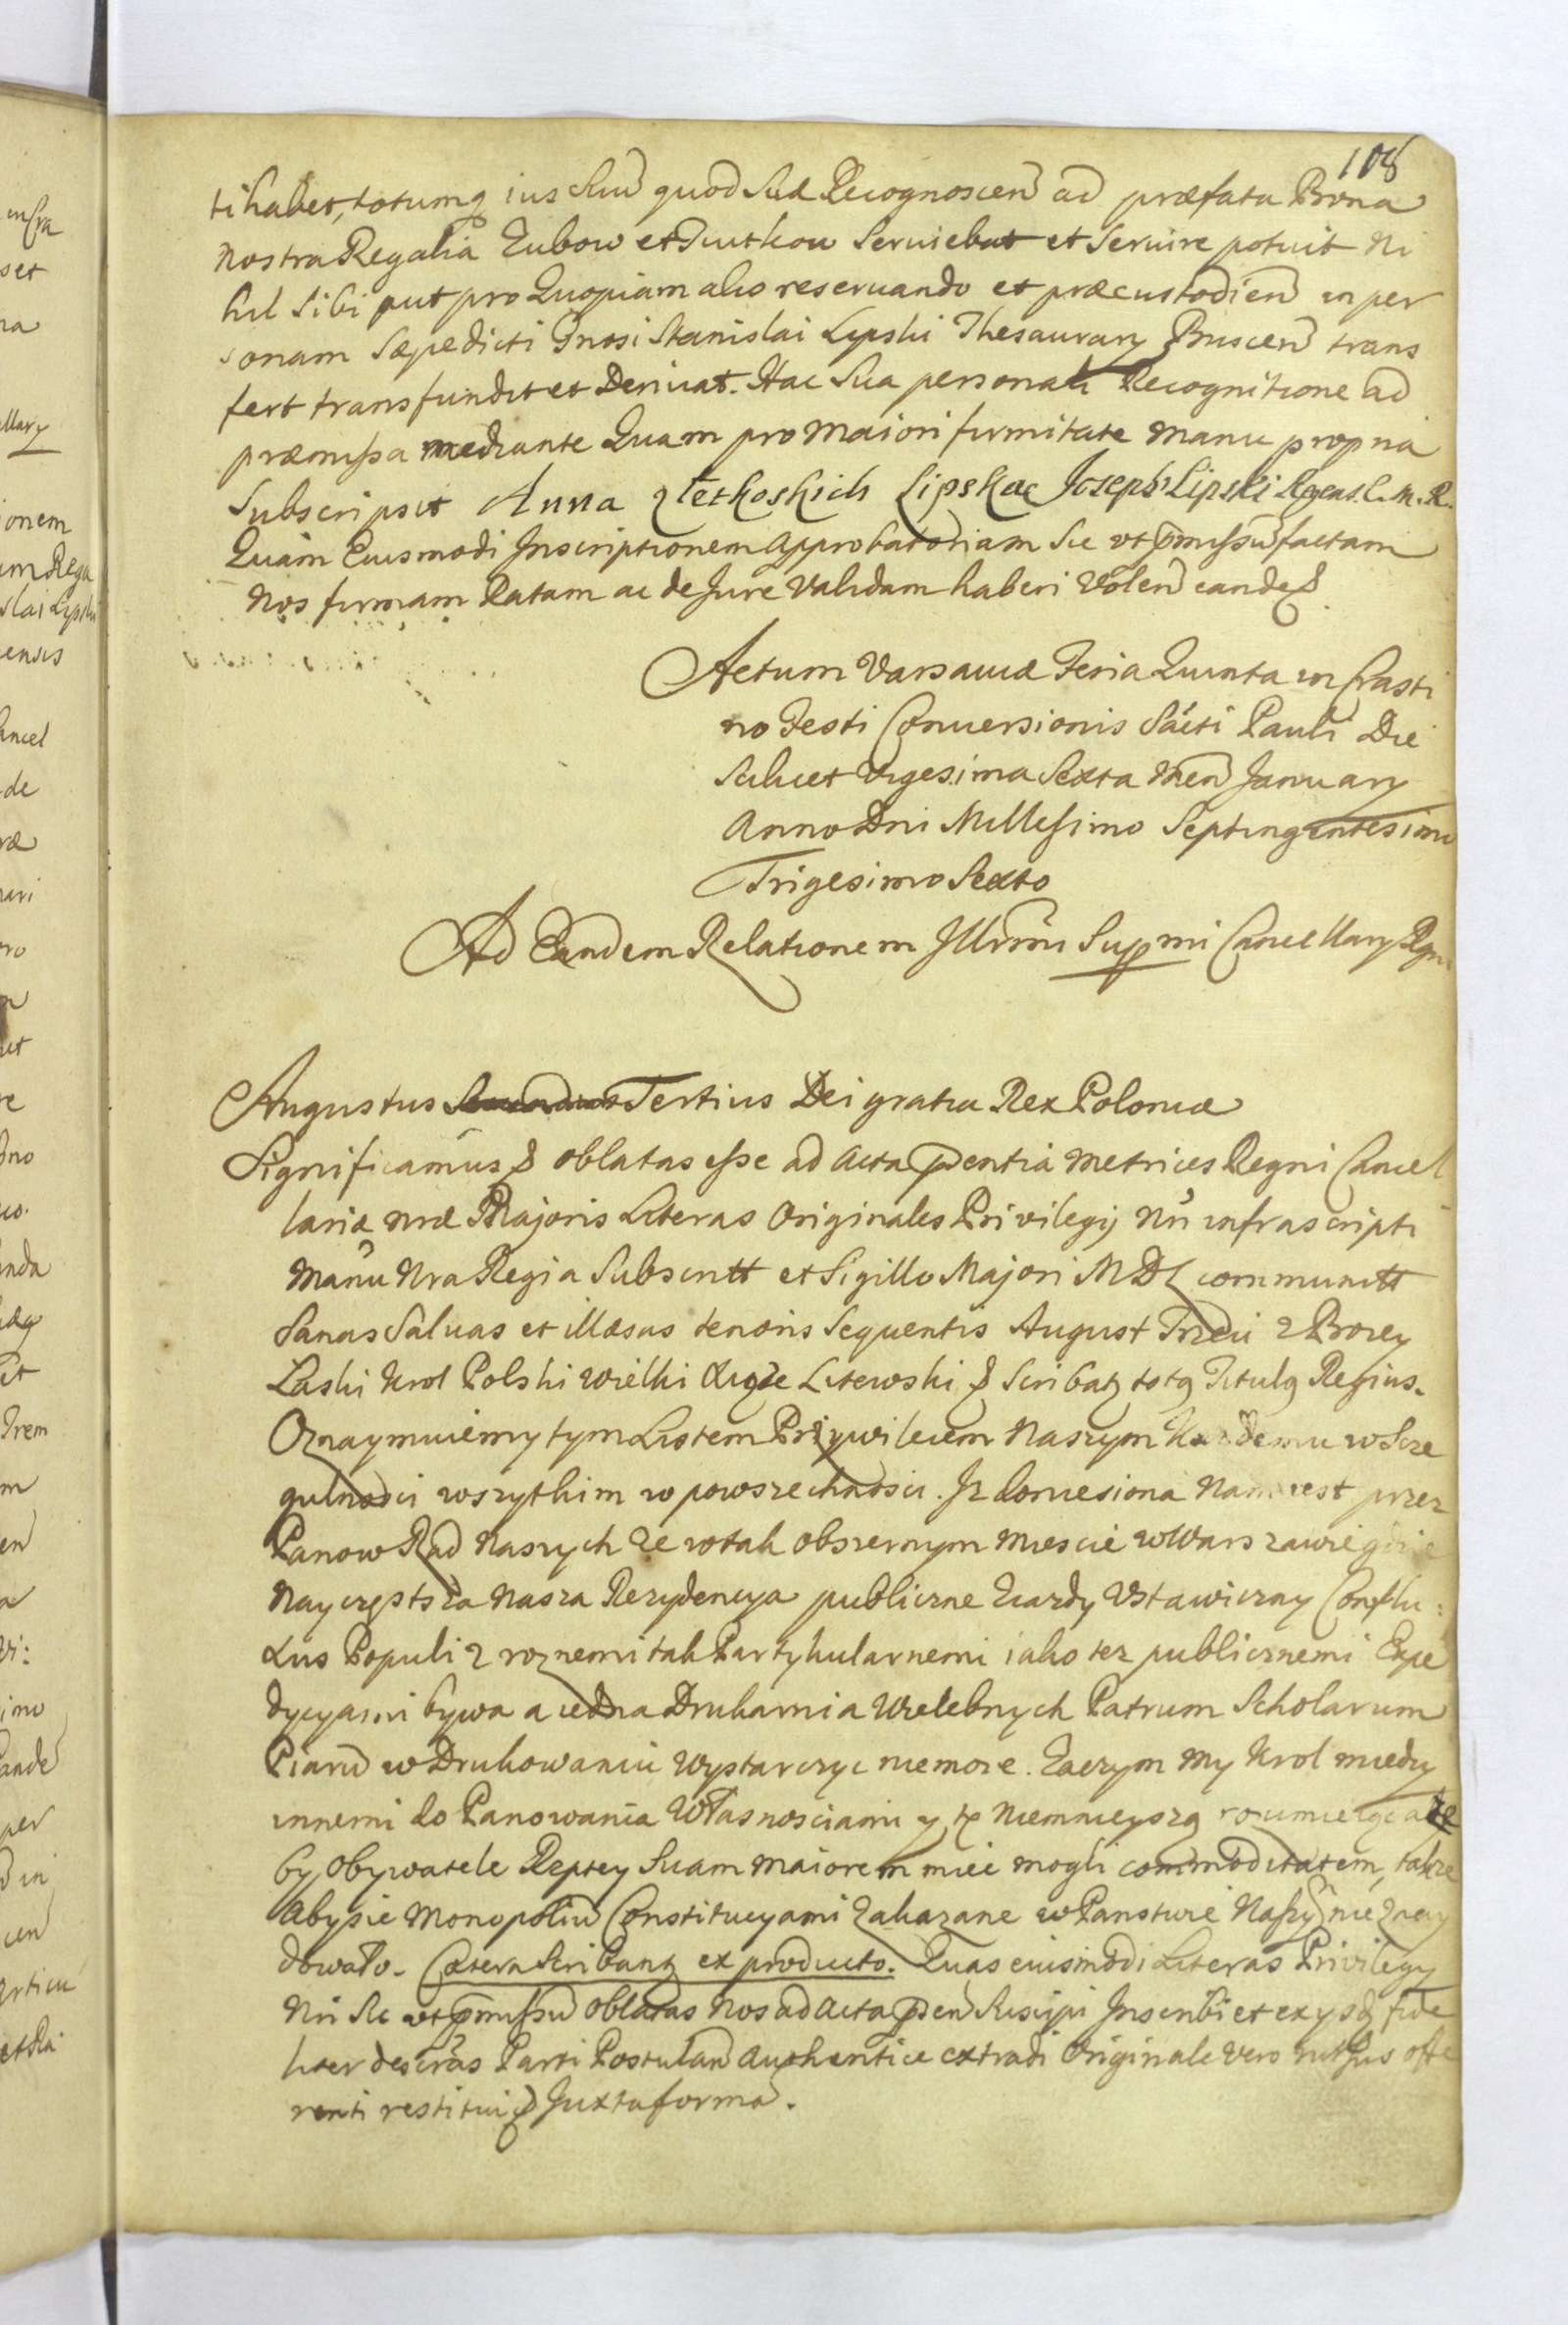 108
ti habet, totumq ius Suu quod Suæ Recognoscen ad præfata Bona
nostra Regalia Zubow et Dutkow Seruiebat et Seruire potuit Ni
hil Sibi aut pro Quopiam alio reseruando et præcustodien in per
sonam Sæpedicti Gnosi Stanislai Lipski Thesaurary Buscen trans
fert transfundit et Deriuat. Hac Sua personali Recognitione ad
præmissa mediante Quam pro maiori firmitate manu propria
Subscripsit Anna Lipska Joseph Lipski Regens C. M. R.
Quam Eiusmodi Inscriptionem approbatoriam Sic vt pmissu factam
Nos firmam Ratam ac de Jure Validam haberi Volen eande
Actum Varsauiæ Feria Quinta in Crasti
no Festi Conuersionis Sacti Pauli Die
Scilicet Vigesima Sexta Men January
Anno Dni Millesimo Septingentesimo
Trigesimo Sexto
Ad Eandem Relationem Illrmi Supmi Cancellary Regni
Augustus Tertius Dei gratia Rex Poloniæ
Significamus & oblatas esse ad Acta pentia Metrices Regni Cancel
lariæ nræ Majoris Literas Originales Privilegij Nri infrascripti
Manu Nra Regia Subscritt et Sigillo Majori MDL communitt
Sanas Saluas et illæsas tenoris Sequentis August Trzeci z Bozey
Łaski Krol Polski Wielki Xiąże Litewski & Scribatz totq Titulq Regius.
Oznaymuiemy tym Listem Przywileiem Naszym Każdemu w Szcze
gulnosci wszytkim w powszechnosci. Iz doniesiona Nam iest przez
Panow Rad Naszych ze w tak obszernym miescie w Warszawie gdzie
Nayczęstsza Nasza Rezydencya publiczne Ziazdy Vstawiczny Conflu:
xus Populi z roznemi tak Partykularnemi iako tez publicznemi Expe
dycyami bywa a iedna Drukarnia Wielebnych Patrum Scholarum
Piaru w Drukowaniu Wystarczyc niemoze. Zaczym My Krol miedzy
innemi do Panowania Własnosciami y tę niemnieyszą rozumieiąc aże
by Obywatele Rzptey Suam maiorem miec mogli commoditatem, takze
Abysie Monopoliu Constitucyami Zakazane w Panstwie Naszy nie Znay
dowało. Cætera Scribantz ex producto. Quas eiusmodi Literas Privilegy
Nri Sic vt pmissu oblatas Nos ad Acta psen Suscipi Inscribi et ex ysd fide
liter descras Parti Postulan Authentice extradi Originale vero rursus offe
renti restitui & Juxta forma.